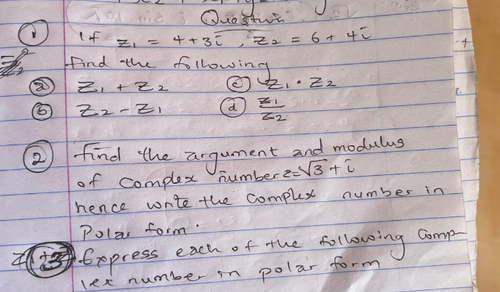 Question
① If z₁ = 4 + 3i, z₂ = 6 + 4i
find the following
ⓐ z₁ + z₂ ⓒ z₁ · z₂
ⓑ z₂ - z₁ ⓓ z₁/z₂
② find the argument and modulus
of complex number z=√3 + i
hence write the complex number in
polar form.
③ Express each of the following comp-
lex number in polar form